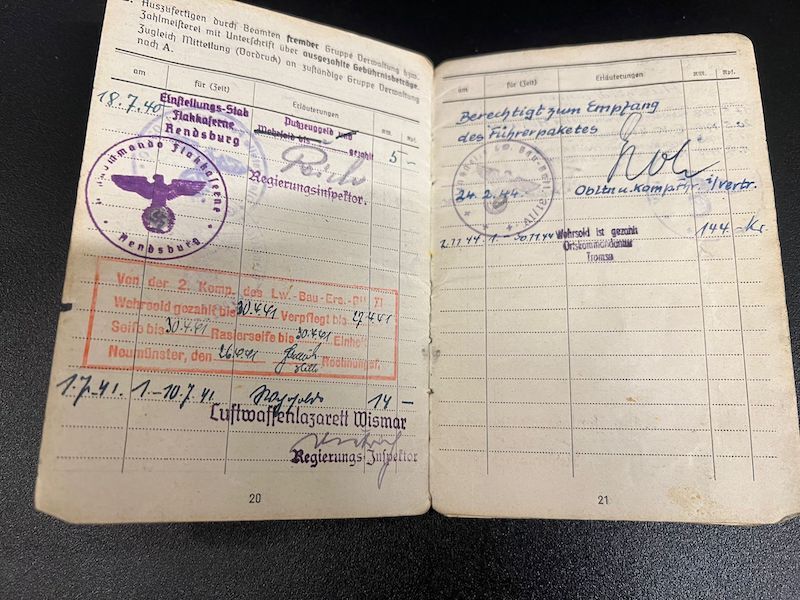 Auszufertigen durch Beamten fremder Gruppe Verwaltung bzw.
Zahlmeisterei mit Unterschrift über ausgezahlte Gebührnisbeträge.
Zugleich Mitteilung (Vordruck) an zuständige Gruppe Verwaltung
nach A.
am für (Zeit) Erläuterungen RM. Rpf.
18.7.40 Einstellungs-Stab Putzzeuggeld und 5 –
Flakkaserne Wehrsold bis gezahlt
Rendsburg
Regierungsinspektor.
kommando Flakkaserne
Rendsburg
Von der 2. Komp. des Lw.-Bau-Ers.-Btl. XI
Wehrsold gezahlt bis 30.4.41 Verpflegt bis 27.4.41
Seife bis 30.4.41 Rasierseife bis 30.4.41 Einheit
Neumünster, den 26.4.41 Rechnungsf.
1.7.41. 1.–10.7.41 14 –
Luftwaffenlazarett Wismar
Regierungs-Inspektor
20
am für (Zeit) Erläuterungen RM. Rpf.
Berechtigt zum Empfang
des Führerpaketes
24.2.44.
Obltn u. Komp. Fhr. i/vertr.
2.11.44 1.–30.11.44 Wehrsold ist gezahlt 144 – Kr.
Ortskommandantur
Tromsö
21